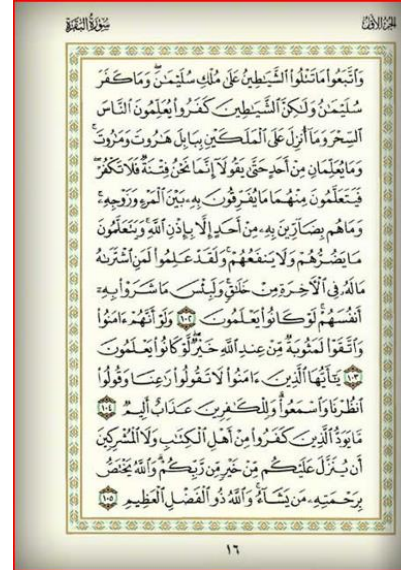 سُورَةُ البَقَرَةِ
الجزء الأول
وَاتَّبَعُوا مَا تَتْلُوا الشَّيَاطِينُ عَلَىٰ مُلْكِ سُلَيْمَٰنَ وَمَا كَفَرَ
سُلَيْمَٰنُ وَلَٰكِنَّ الشَّيَٰطِينَ كَفَرُوا يُعَلِّمُونَ النَّاسَ
السِّحْرَ وَمَا أُنزِلَ عَلَى الْمَلَكَيْنِ بِبَابِلَ هَٰرُوتَ وَمَٰرُوتَ
وَمَا يُعَلِّمَانِ مِنْ أَحَدٍ حَتَّىٰ يَقُولَا إِنَّمَا نَحْنُ فِتْنَةٌ فَلَا تَكْفُرْ
فَيَتَعَلَّمُونَ مِنْهُمَا مَا يُفَرِّقُونَ بِهِ بَيْنَ الْمَرْءِ وَزَوْجِهِ
وَمَا هُم بِضَارِّينَ بِهِ مِنْ أَحَدٍ إِلَّا بِإِذْنِ اللَّهِ وَيَتَعَلَّمُونَ
مَا يَضُرُّهُمْ وَلَا يَنفَعُهُمْ وَلَقَدْ عَلِمُوا لَمَنِ اشْتَرَىٰهُ
مَا لَهُ فِي الْآخِرَةِ مِنْ خَلَٰقٍ وَلَبِئْسَ مَا شَرَوْا بِهِ
أَنفُسَهُمْ لَوْ كَانُوا يَعْلَمُونَ ١٠٢ وَلَوْ أَنَّهُمْ ءَامَنُوا
وَاتَّقَوْا لَمَثُوبَةٌ مِّنْ عِندِ اللَّهِ خَيْرٌ لَّوْ كَانُوا يَعْلَمُونَ
١٠٣ يَٰأَيُّهَا الَّذِينَ ءَامَنُوا لَا تَقُولُوا رَٰعِنَا وَقُولُوا
انظُرْنَا وَاسْمَعُوا وَلِلْكَٰفِرِينَ عَذَابٌ أَلِيمٌ ١٠٤
مَّا يَوَدُّ الَّذِينَ كَفَرُوا مِنْ أَهْلِ الْكِتَٰبِ وَلَا الْمُشْرِكِينَ
أَن يُنَزَّلَ عَلَيْكُم مِّنْ خَيْرٍ مِّن رَّبِّكُمْ وَاللَّهُ يَخْتَصُّ
بِرَحْمَتِهِ مَن يَشَاءُ وَاللَّهُ ذُو الْفَضْلِ الْعَظِيمِ ١٠٥
١٦